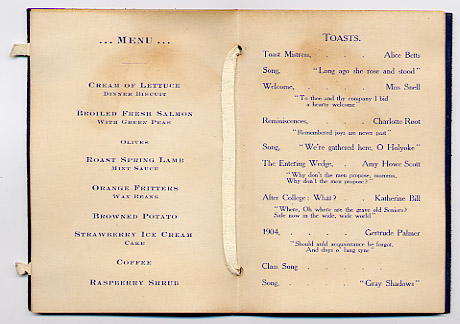 ... MENU ...
CREAM OF LETTUCE
DINNER BISCUIT
BROILED FRESH SALMON
WITH GREEN PEAS
OLIVES
ROAST SPRING LAMB
MINT SAUCE
ORANGE FRITTERS
WAX BEANS
BROWNED POTATO
STRAWBERRY ICE CREAM
CAKE
COFFEE
RASPBERRY SHRUB
TOASTS.
Toast Mistress, . . . Alice Betts
Song, "Long ago she rose and stood"
Welcome, . . . . Miss Snell
"To thee and thy company I bid
a hearty welcome"
Reminiscences, . . . Charlotte Root
"Remembered joys are never past"
Song, "We're gathered here, O Holyoke"
The Entering Wedge, . Amy Howe Scott
"Why don't the men propose, mamma,
Why don't the men propose?"
After College: What? . Katherine Bill
"Where, Oh where are the grave old Seniors?
Safe now in the wide, wide world"
1904, . . . . Gertrude Palmer
"Should auld acquaintance be forgot,
And days o' lang syne"
Class Song . . . . .
Song, . . . . "Gray Shadows"